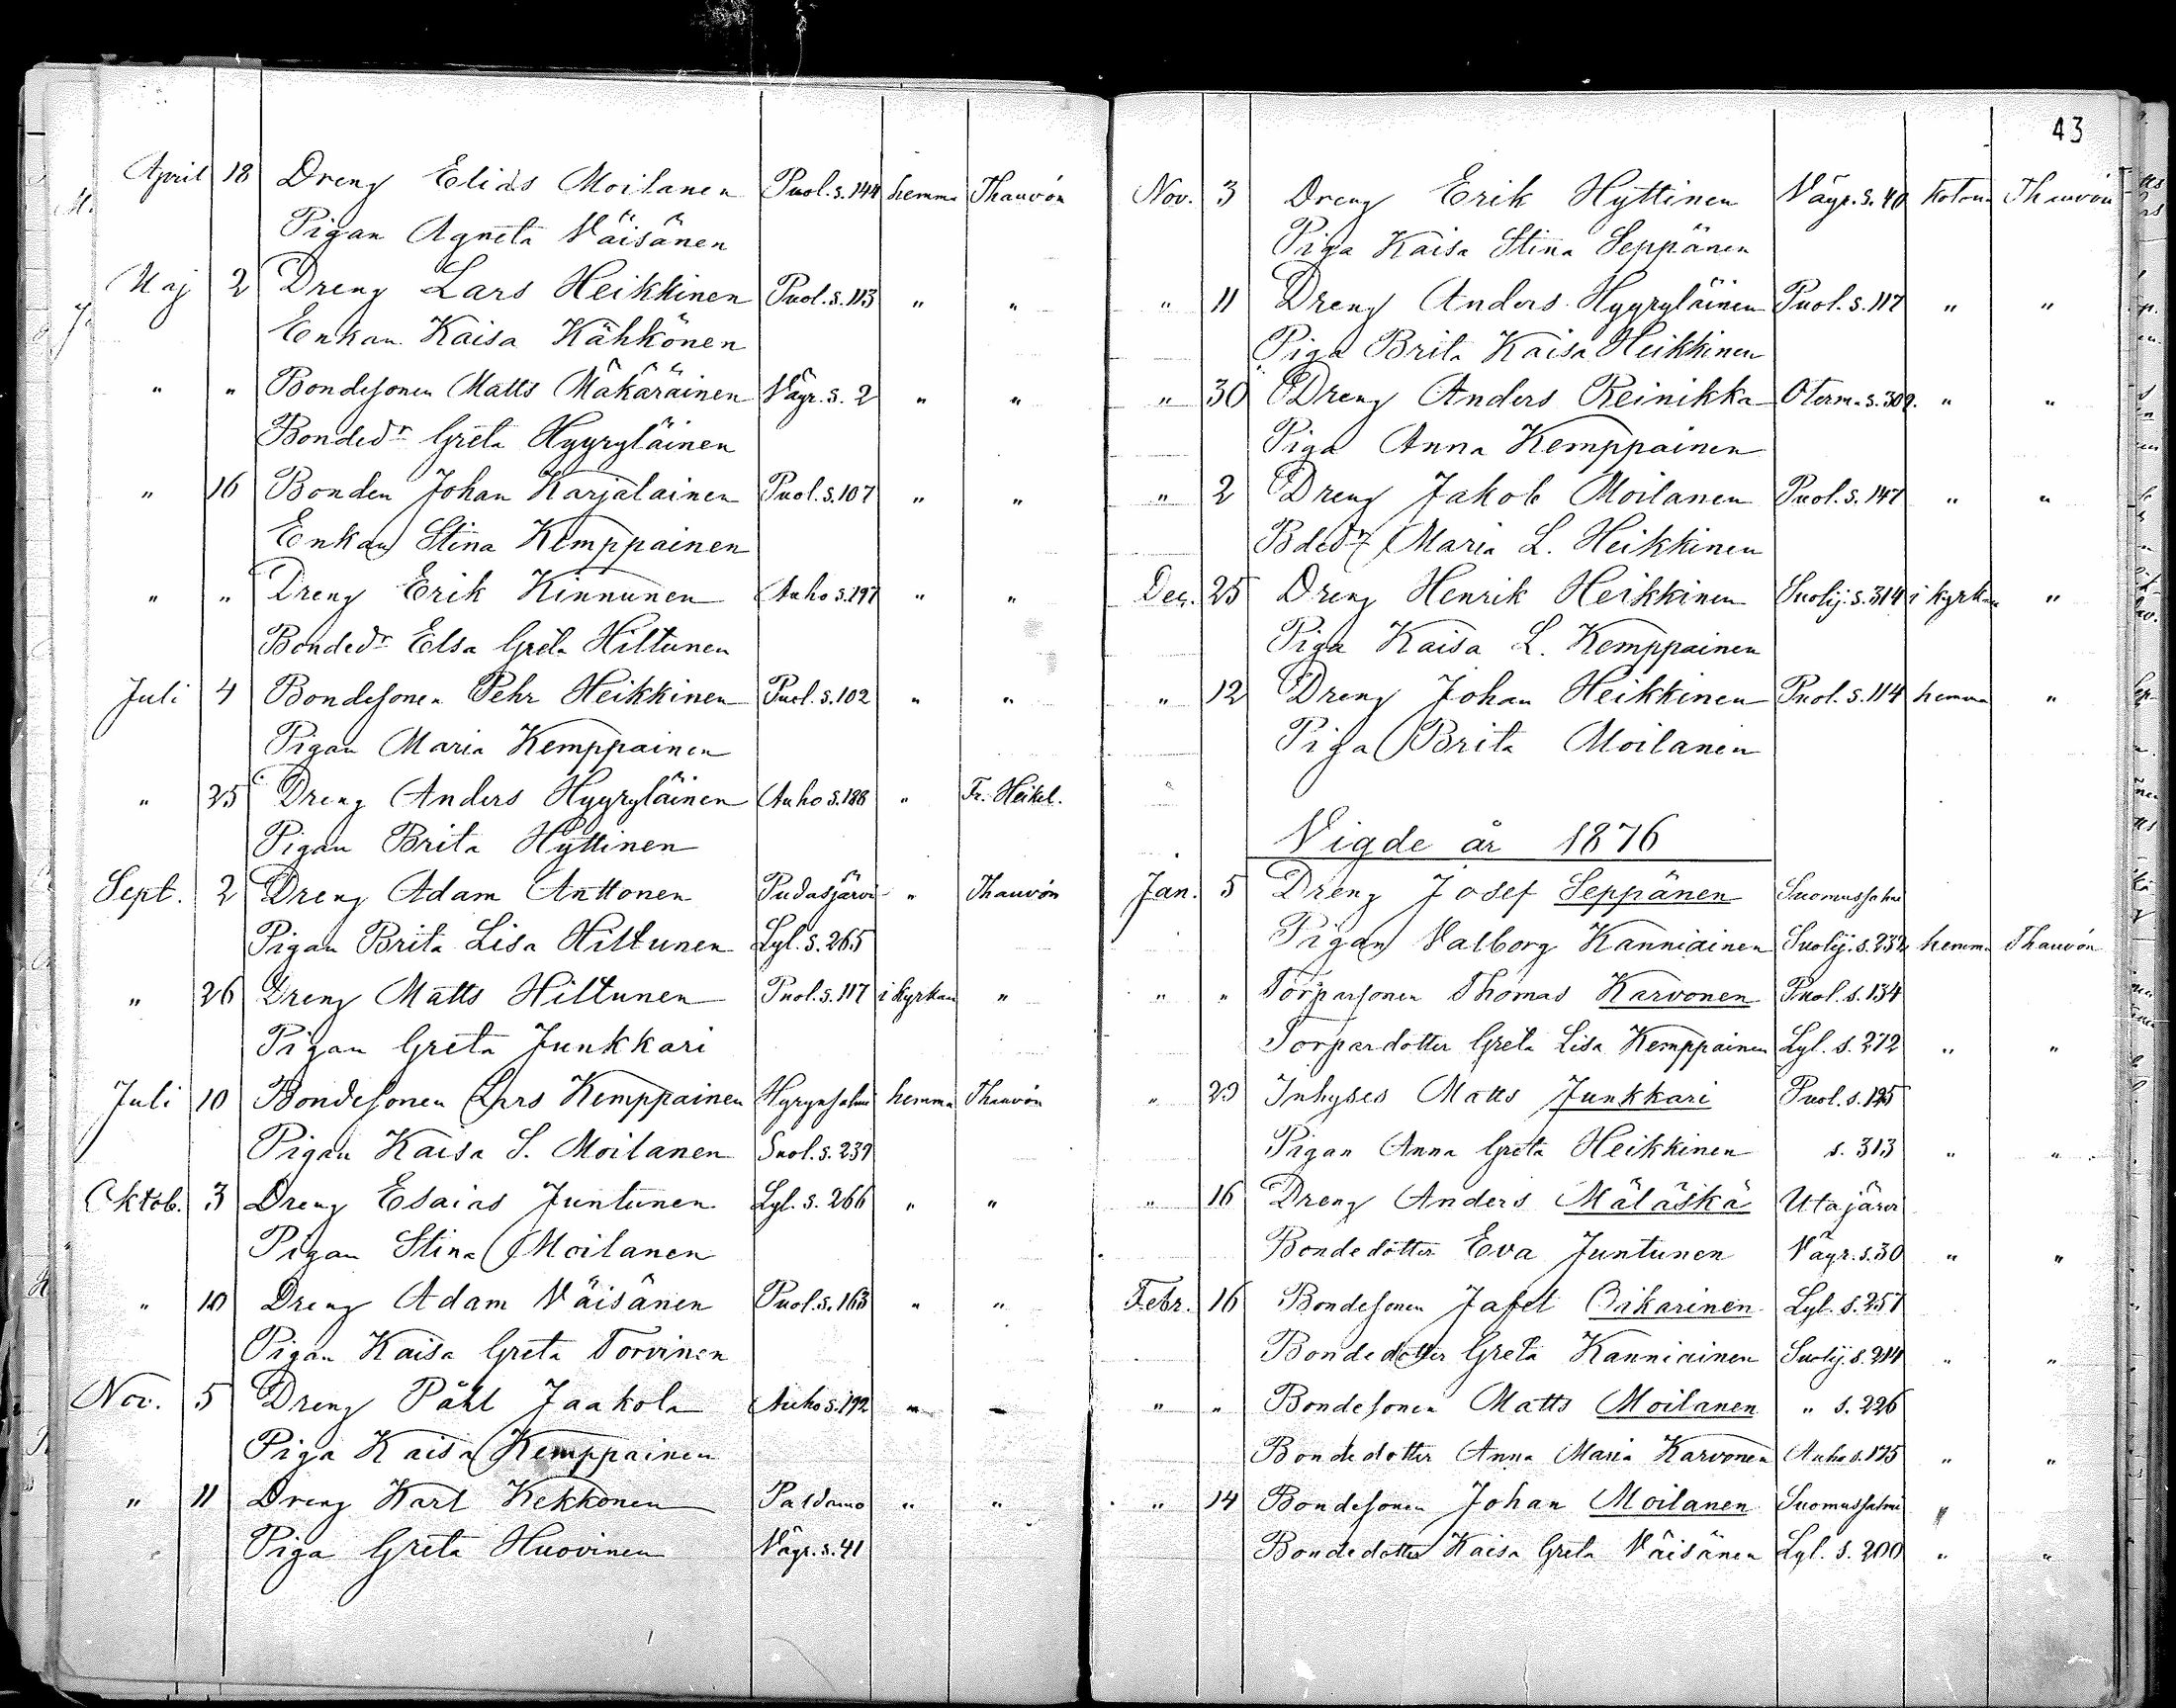 April 18 Dreng Elias Moilanen Puol. s. 144 hemma Thauvón
Pigan Agneta Väisänen
Maj 2 Dreng Lars Heikkinen Puol. s. 113 " "
Enkan Kaisa Kähkönen
" " Bondesonen Matts Mäkäräinen Vägr. s. 2 " "
Bondedr Greta Hyyryläinen
" 16 Bonden Johan Karjalainen Puol. s. 107 " "
Enkan Stina Kemppainen
" " Dreng Erik Kinnunen Auho s. 197 " "
Bondedr Elsa Greta Hiltunen
Juli 4 Bondesonen Pehr Heikkinen Puol. s. 102 " "
Pigan Maria Kemppainen
" 25 Dreng Anders Hyyryläinen Auho s. 188 " Fr. Heikel.
Pigan Brita Hyttinen
Sept. 2 Dreng Adam Anttonen Pudasjärvi " Thauvón
Pigan Brita Lisa Hiltunen Lyl. s. 265
" 26 Dreng Matts Hiltunen Puol. s. 117 i kyrkan "
Pigan Greta Junkkari
Juli 10 Bondesonen Lars Kemppainen Hyrynsalmi hemma Thauvón
Pigan Kaisa S. Moilanen Suol. s. 239
Oktob. 3 Dreng Esaias Juntunen Lyl. s. 266 " "
Pigan Stina Moilanen
" 10 Dreng Adam Väisänen Puol. s. 163 " "
Pigan Kaisa Greta Torvinen
Nov. 5 Dreng Påhl Jaakola Auho s. 192 " "
Piga Kaisa Kemppainen
" 11 Dreng Karl Kekkonen Paldamo " "
Piga Greta Huovinen Vägr. s. 41
43
Nov. 3 Dreng Erik Hyttinen Vägr. s. 40 kotona Thauvón
Piga Kaisa Stina Seppänen
" 11 Dreng Anders Hyyryläinen Puol. s. 117 " "
Piga Brita Kaisa Heikkinen
" 30 Dreng Anders Reinikka Oterma s. 309. " "
Piga Anna Kemppainen
" 2 Dreng Jakob Moilanen Puol. s. 147 " "
Bdedr Maria L. Heikkinen
Dec. 25 Dreng Henrik Heikkinen Suolij. s. 314 i kyrkan "
Piga Kaisa L. Kemppainen
" 12 Dreng Johan Heikkinen Puol. s. 114 hemma "
Piga Brita Moilanen
Vigde år 1876
Jan. 5 Dreng Josef Seppänen Suomussalmi
Pigan Valborg Kanniainen Suolij. s. 232 hemma Thauvón
" " Torparsonen Thomas Karvonen Puol. s. 134
Torpardotter Greta Lisa Kemppainen Lyl. s. 272 " "
" 29 Inhyses Matts Junkkari Puol. s. 125
Pigan Anna Greta Heikkinen s. 313 " "
" 16 Dreng Anders Mäläskä Utajärvi
Bondedotter Eva Juntunen Vägr. s. 30 " "
Febr. 16 Bondesonen Jafet Oikarinen Lyl. s. 257
Bondedotter Greta Kanniainen Suolij. s. 214 " "
" " Bondesonen Matts Moilanen " s. 226
Bondedotter Anna Maria Karvonen Auho s. 175 " "
" 14 Bondesonen Johan Moilanen Suomussalmi "
Bondedotter Kaisa Greta Väisänen Lyl. s. 200 " "